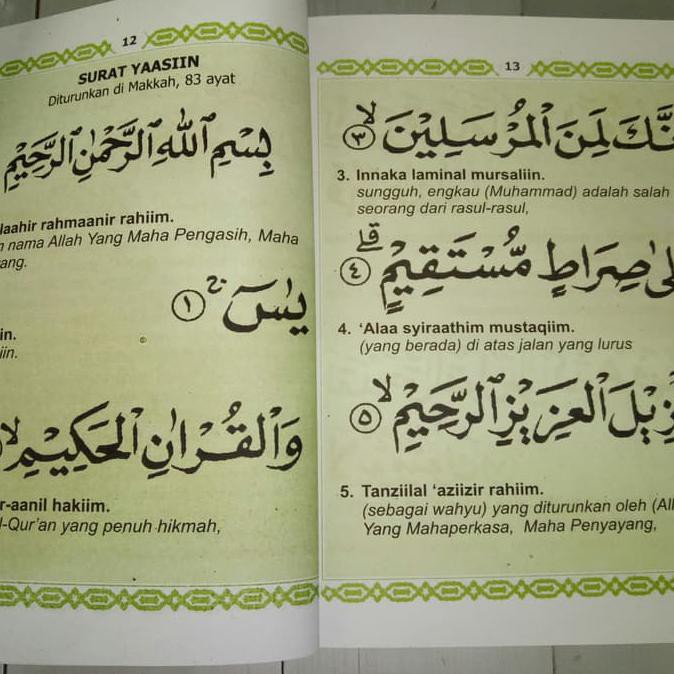 12
SURAT YAASIIN
Diturunkan di Makkah, 83 ayat
بِسْمِ اللّٰهِ الرَّحْمٰنِ الرَّحِيْمِ
laahir rahmaanir rahiim.
nama Allah Yang Maha Pengasih, Maha
ang.
يٰسۤ ۚ ١
in.
iin.
وَالْقُرْاٰنِ الْحَكِيْمِ ۙ
r-aanil hakiim.
l-Qur'an yang penuh hikmah,
13
نَّكَ لَمِنَ الْمُرْسَلِيْنَ ۙ ٣
3. Innaka laminal mursaliin.
sungguh, engkau (Muhammad) adalah salah
seorang dari rasul-rasul,
لٰى صِرَاطٍ مُّسْتَقِيْمٍ ۗ ٤
4. 'Alaa syiraathim mustaqiim.
(yang berada) di atas jalan yang lurus
زِيْلَ الْعَزِيْزِ الرَّحِيْمِ ۙ ٥
5. Tanziilal 'aziizir rahiim.
(sebagai wahyu) yang diturunkan oleh (All
Yang Mahaperkasa, Maha Penyayang,